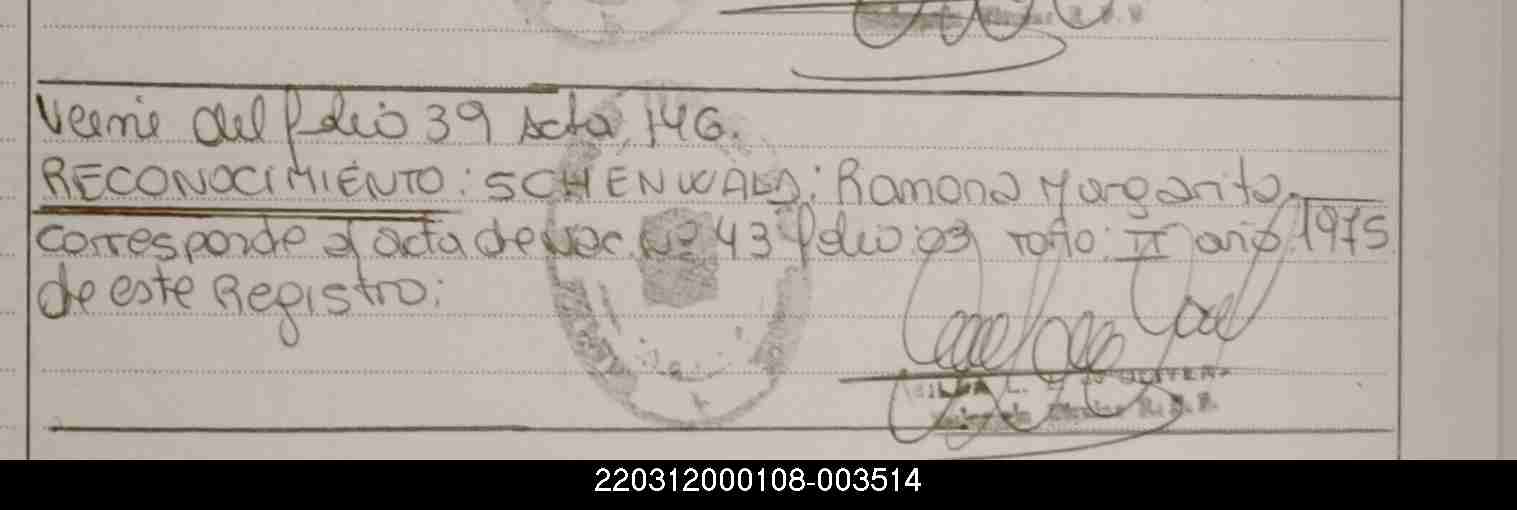 Viene del folio 39 Acta 146.
RECONOCIMIENTO: SCHENWALD: Ramona Margarita
corresponde al acta de nac. Nº 43 folio 03 Tomo: II año 1975
de este Registro:
220312000108-003514